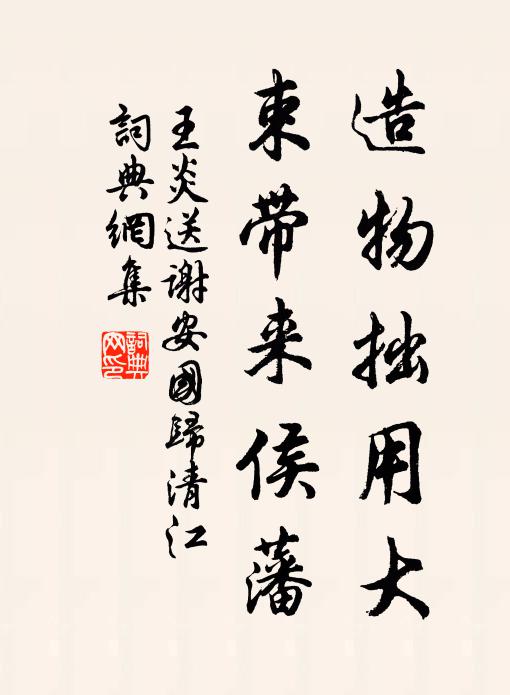 造物拙用大
束带来侯藩
王炎送谢安國歸清江
詞典網集
詞典網印